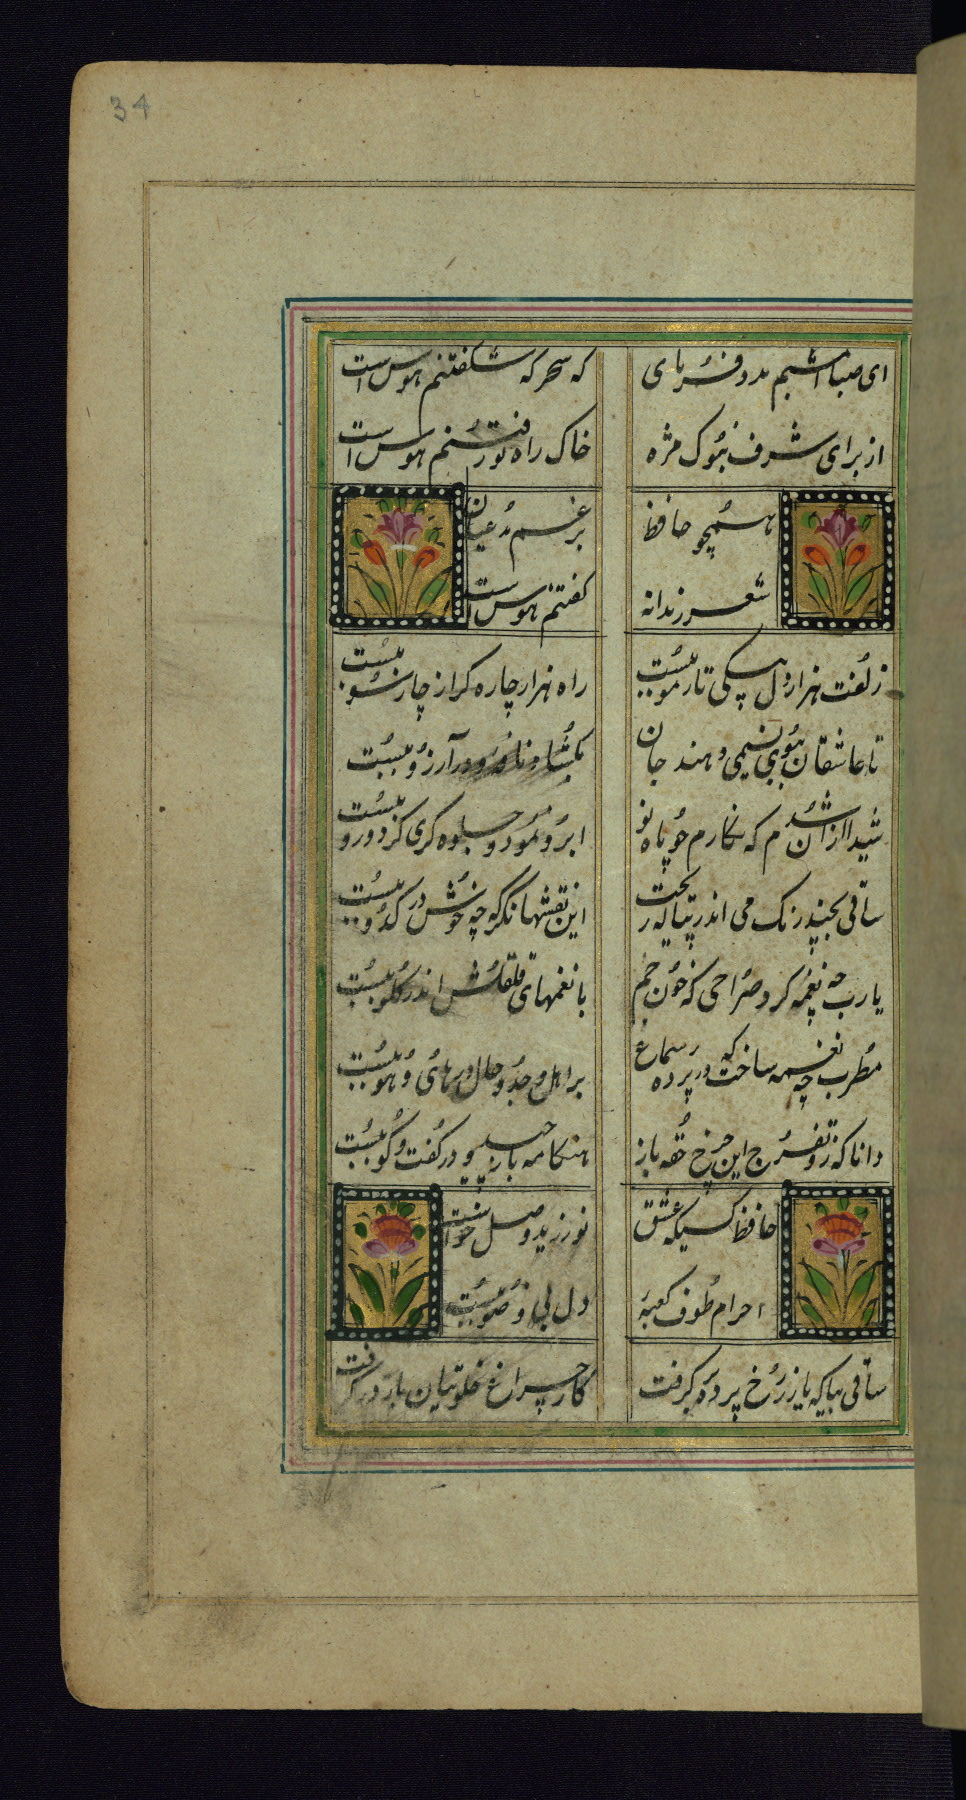 34
ای صبا امشبم مدد فرمای که سحرگه شکفتنم هوس است
از برای شرف بنوک مژه خاک راه تو رفتنم هوس است
همچو حافظ برغم مدعیان
شعر رندانه گفتنم هوس است
زلفت هزار دل بیکی تار مو ببست راه هزار چاره گر از چار سو ببست
تا عاشقان ببوی نسیمی دهند جان بگشاد نافه و در آرزو ببست
شیدا از آن شدم که نگارم چو ماه نو ابرو نمود و جلوه گری کرد و رو ببست
ساقی بچند رنگ می اندر پیاله ریخت این نقشها نگر که چه خوش در کدو ببست
یارب چه نغمه کرد صراحی که خون خم با نغمهای قلقلش اندر گلو ببست
مطرب چه نغمه ساخت که در پرده سماع بر اهل وجد و حال در های و هو ببست
دانا که زد تفرج این چرخ حقه باز هنگامه باز چید و در گفت و گو ببست
حافظ کسیکه عشق نورزید و وصل خواست
احرام طوف کعبه دل بی وضو ببست
ساقی بیا که یار ز رخ پرده برگرفت کار چراغ خلوتیان باز درگرفت